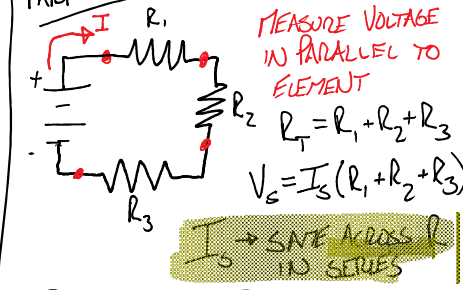 I
R₁
MEASURE VOLTAGE
IN PARALLEL TO
ELEMENT
+
R₂
-
R₃
R_T = R₁ + R₂ + R₃
V_S = I_S (R₁ + R₂ + R₃)
I_S → SAME ACROSS R
IN SERIES